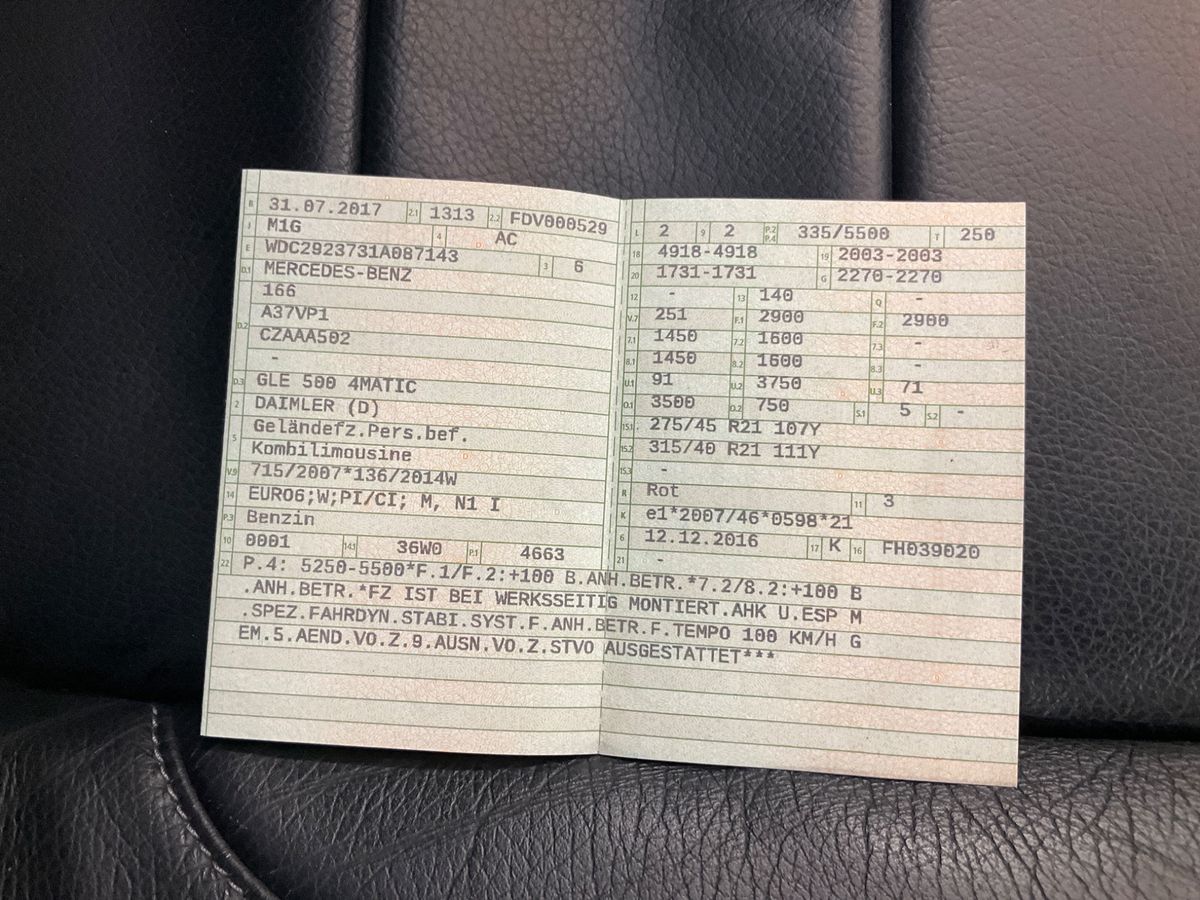 B 31.07.2017 2.1 1313 2.2 FDV000529
J M1G 4 AC
E WDC2923731A087143 3 6
D.1 MERCEDES-BENZ
166
D.2 A37VP1
CZAAA502
-
D.3 GLE 500 4MATIC
2 DAIMLER (D)
5 Geländefz.Pers.bef.
Kombilimousine
V.9 715/2007*136/2014W
14 EURO6;W;PI/CI; M, N1 I
P.3 Benzin
10 0001 14.1 36W0 P.1 4663
L 2 9 2 P.2 P.4 335/5500 T 250
18 4918-4918 19 2003-2003
20 1731-1731 G 2270-2270
12 - 13 140 Q -
V.7 251 F.1 2900 F.2 2900
7.1 1450 7.2 1600 7.3 -
8.1 1450 8.2 1600 8.3 -
U.1 91 U.2 3750 U.3 71
O.1 3500 O.2 750 S.1 5 S.2 -
15.1 275/45 R21 107Y
15.2 315/40 R21 111Y
15.3 -
R Rot 11 3
K e1*2007/46*0598*21
6 12.12.2016 17 K 16 FH039020
21 -
22 P.4: 5250-5500*F.1/F.2:+100 B.ANH.BETR.*7.2/8.2:+100 B
.ANH.BETR.*FZ IST BEI WERKSSEITIG MONTIERT.AHK U.ESP M
.SPEZ.FAHRDYN.STABI.SYST.F.ANH.BETR.F.TEMPO 100 KM/H G
EM.5.AEND.VO.Z.9.AUSN.VO.Z.STVO AUSGESTATTET***